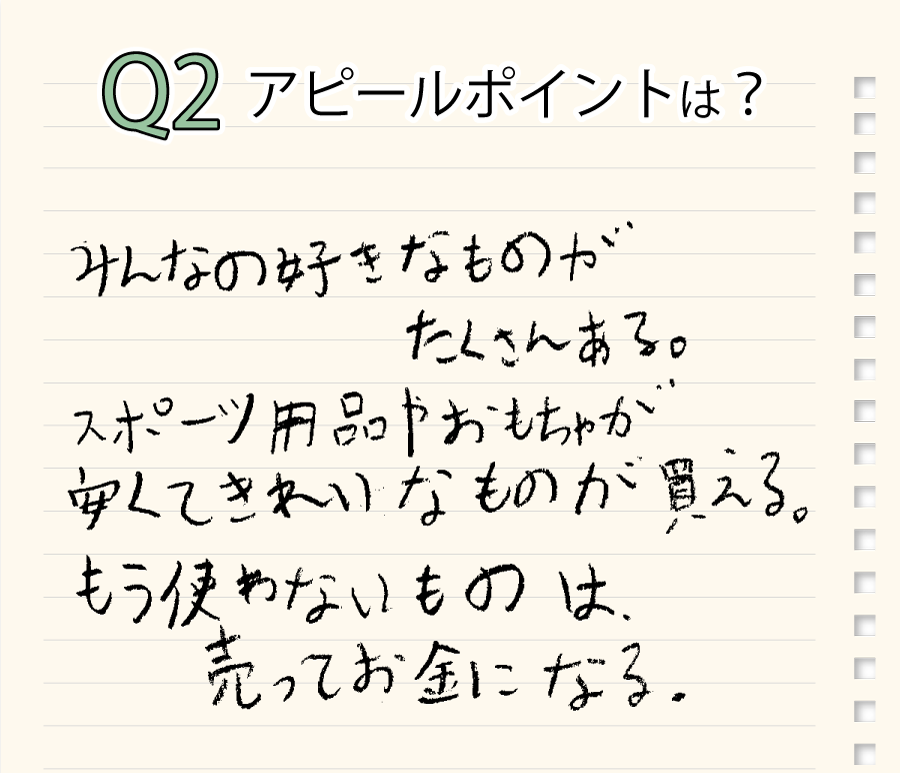 Q2 アピールポイントは？
みんなの好きなものが
たくさんある。
スポーツ用品やおもちゃが
安くてきれいなものが買える。
もう使わないものは、
売ってお金になる。